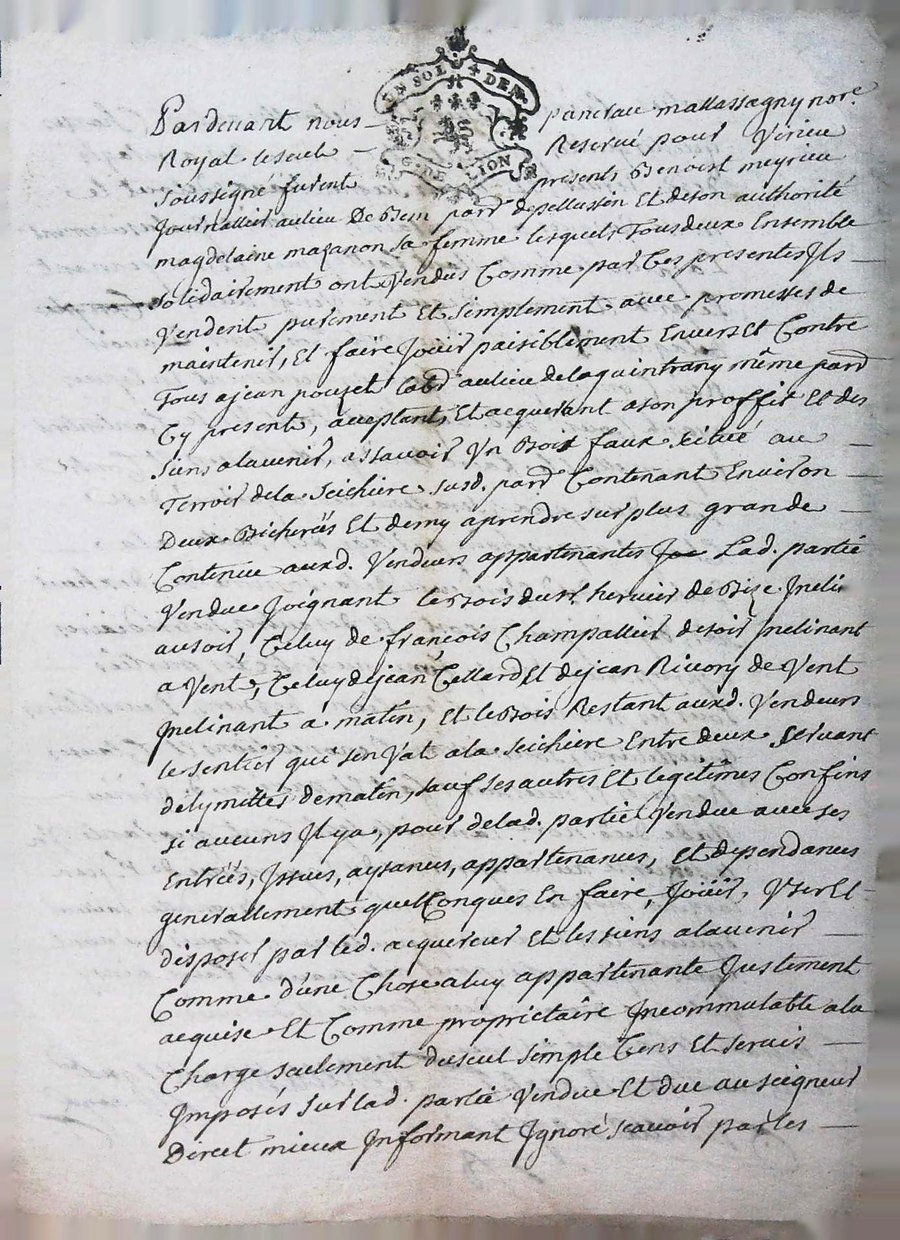 UN SOL 4 DEN.
G. DE LION
Pardevant nous pancrau mallassagny nore.
Royal le seul Reservé pour Verieu
soussigné furent presents Benoist meyrieu
Journallier au lieu De Bem pard depellussin Et de son authorité
magdelaine mazanon sa femme lesquels Tous deux Ensemble
solidairement ont Vendus Comme par Ces presentes Ils
Vendent purement Et simplement avec promesses de
maintenir, Et faire Jouir paisiblement Envers Et Contre
Tous a jean pouzet labr au lieu de la quintrany même pard
Cy present, acceptant, Et acquerant a son proffit Et des
siens alavenir, assavoir Un Bois faux scitué au
Terroir dela Seichiere susd. pard Contenant Environ
Deux Bicherées Et demy aprendre sur plus grande
Contenüe auxd. Vendeurs appartenantes Lad. partie
Vendue Joignant le Bois du sr hervier de Bize Incli
au soir, Celuy de françois Champallier de soir Inclinant
a Vent, Celuy de jean Cellard Et de jean Rivory de Vent
Inclinant a matin, Et le Bois Restant auxd. Vendeurs
le sentier qui sen Vat ala seichiere Entre deux servant
de lymittes de matin, sauf ses autres Et legitimes Confins
si aucuns Il y a, pour de lad. partie Vendue avec ses
Entrées, Issues, aysances, appartenances, Et dependances
generallement quelConques En faire, Joüir, Vser Et
disposer par led. acquereur Et les siens alavenir
Comme d'une Chose a luy appartenante Justement
acquise Et Comme proprietaire Incommutable ala
Charge seulement du seul simple Cens Et servis
Imposés sur lad. partie Vendue Et due au seigneur
Direct mieux Informant Ignoré scavoir par les